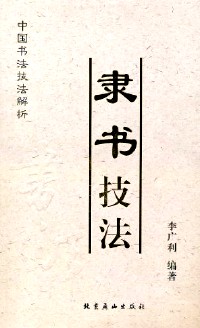 中国书法技法解析
隶书技法
李广利 编著
北京燕山出版社